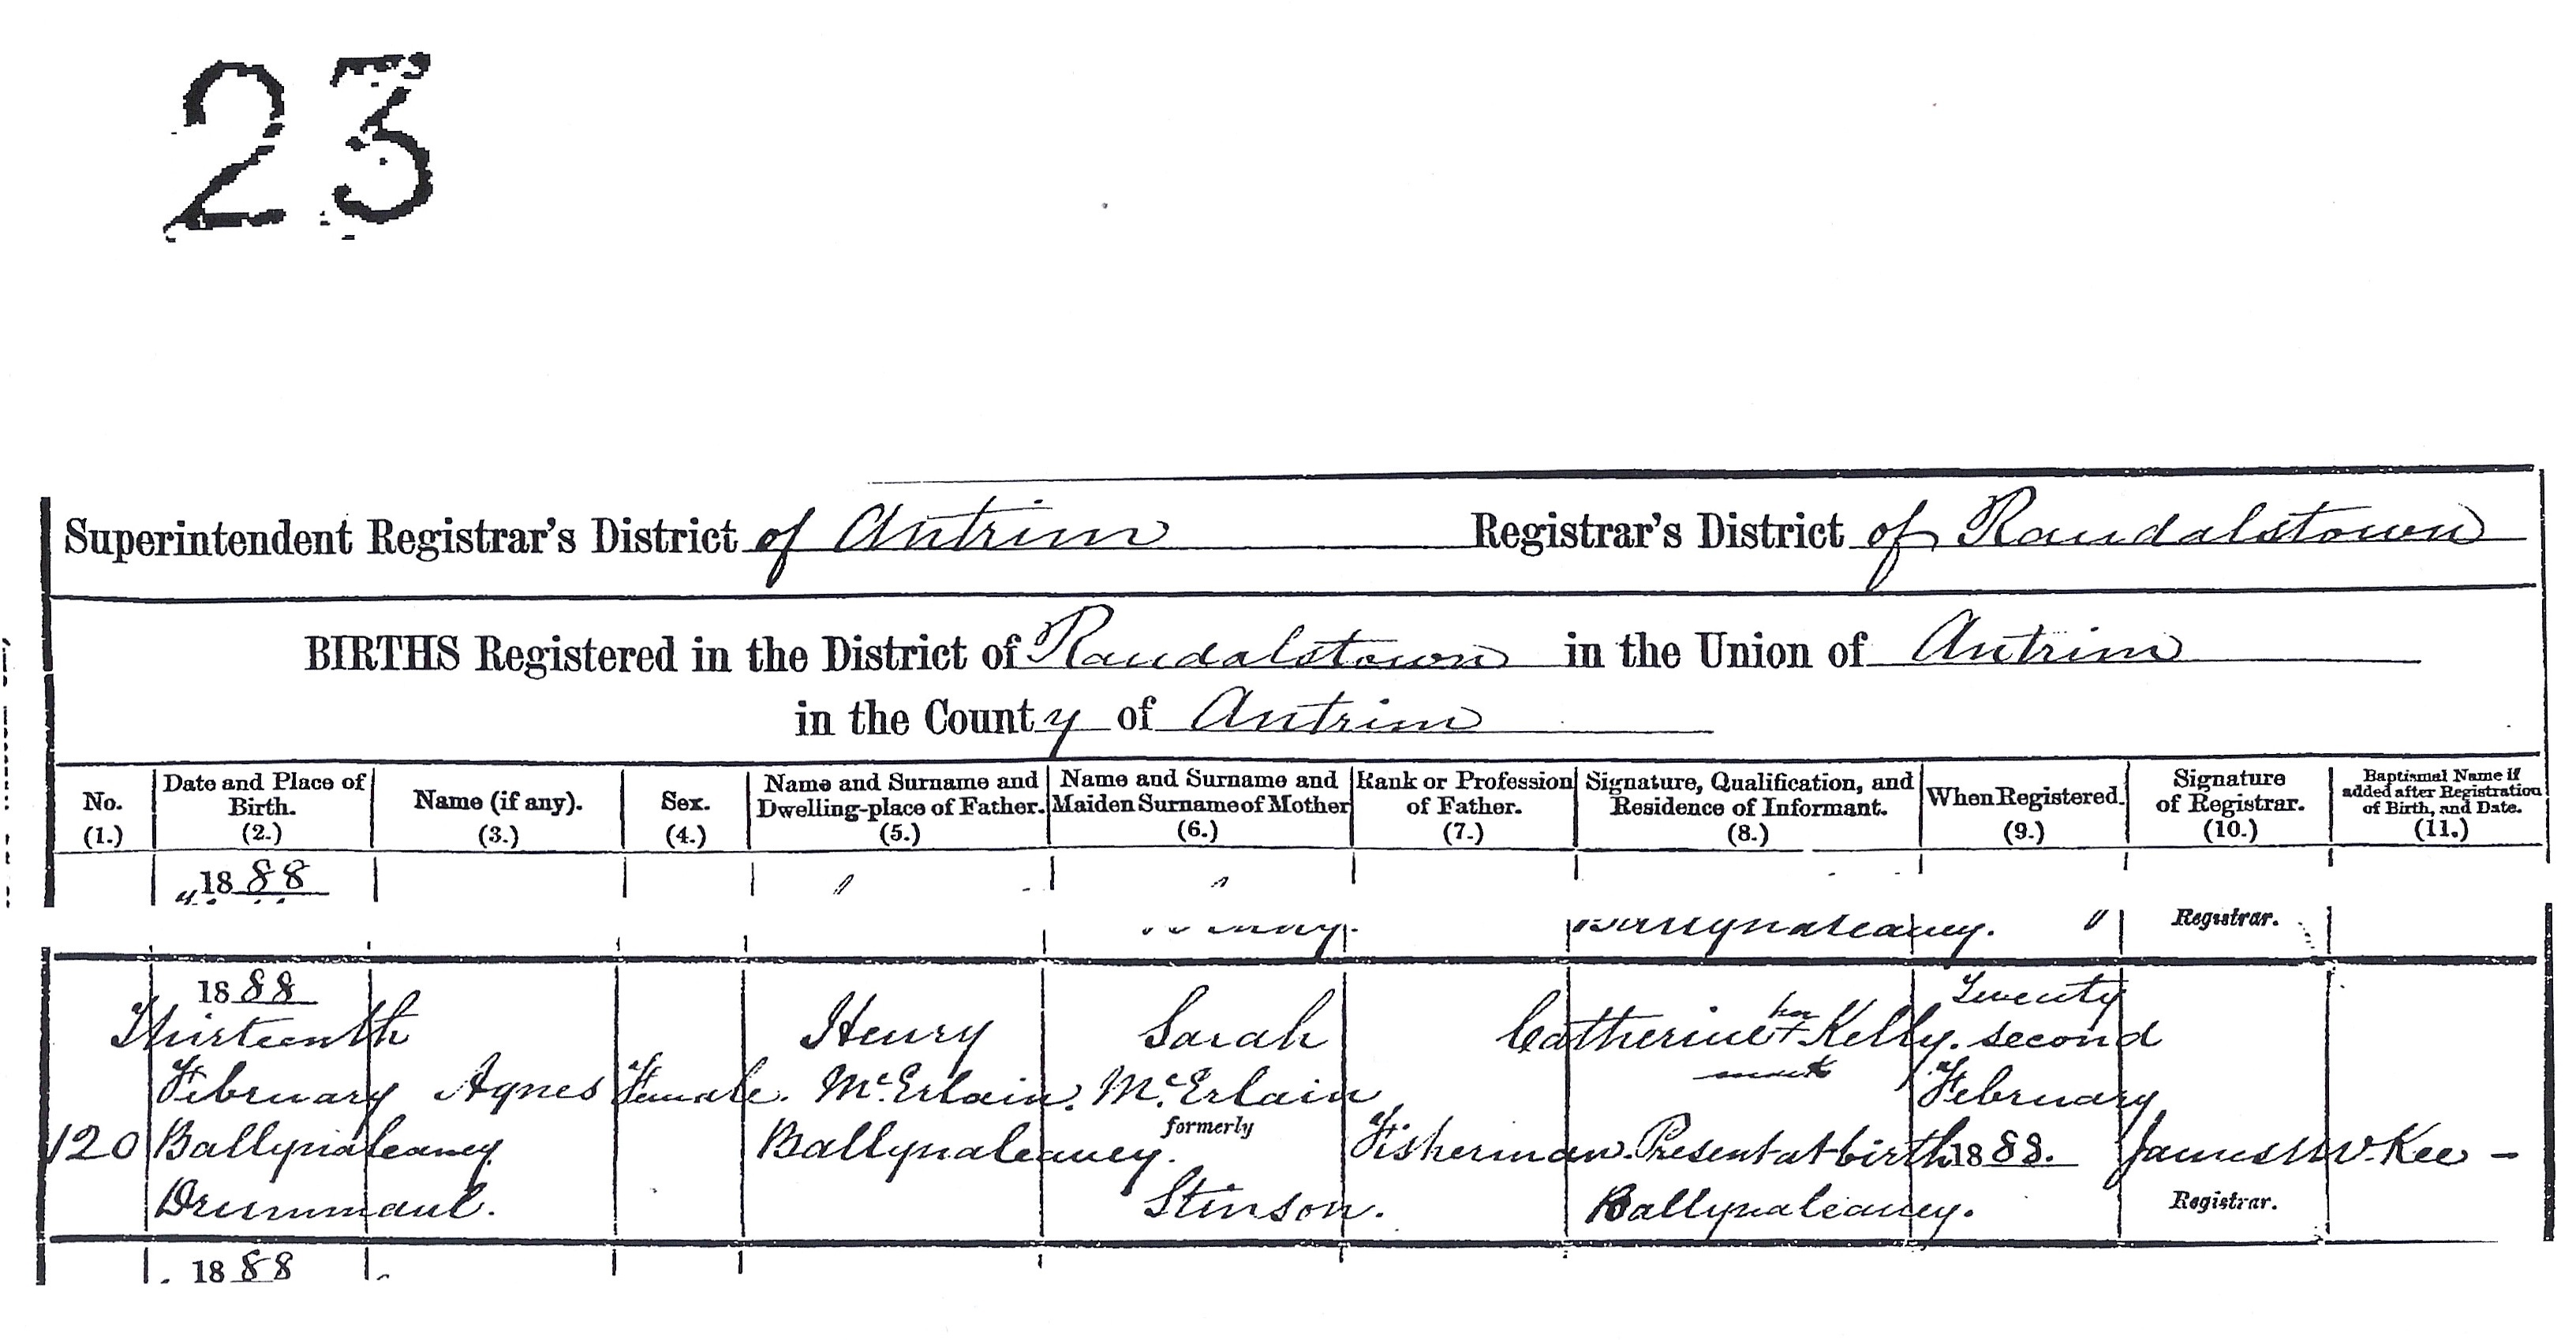 23
Superintendent Registrar's District of Antrim Registrar's District of Randalstown
BIRTHS Registered in the District of Randalstown in the Union of Antrim
in the County of Antrim
No. (1.)
Date and Place of Birth. (2.)
Name (if any). (3.)
Sex. (4.)
Name and Surname and Dwelling-place of Father. (5.)
Name and Surname and Maiden Surname of Mother (6.)
Rank or Profession of Father. (7.)
Signature, Qualification, and Residence of Informant. (8.)
When Registered. (9.)
Signature of Registrar. (10.)
Baptismal Name if added after Registration of Birth, and Date. (11.)
1888
Ballynaleaney. Registrar.
120
1888
Thirteenth
February
Ballynaleaney
Drummaul.
Agnes
Female.
Henry
McErlain.
Ballynaleaney.
Sarah
McErlain
formerly
Stinson.
Fisherman.
Catherine her + Kelly.
mark
Present at birth
Ballynaleaney.
Twenty
second
February
1888.
James W. Kee -
Registrar.
1888